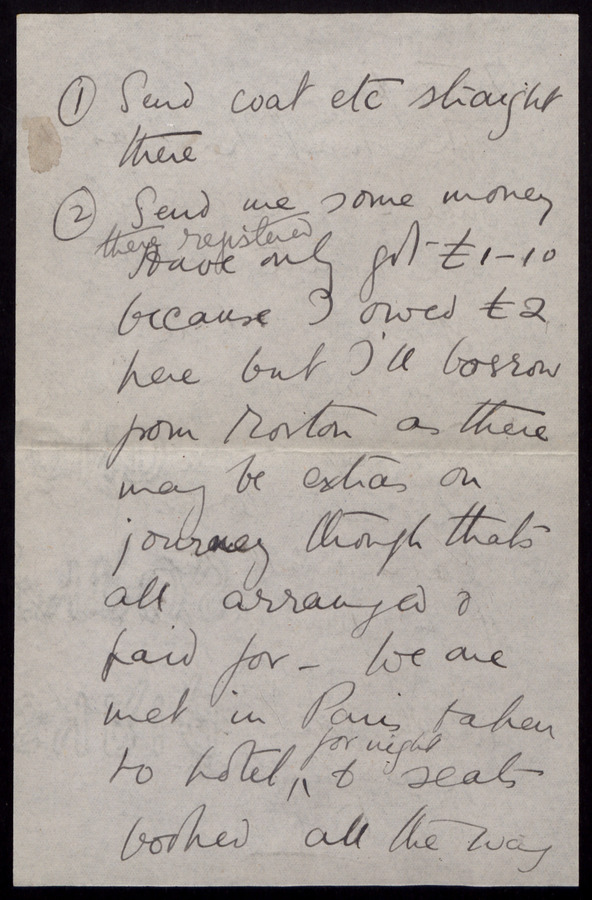 ① Send coat etc straight
there
② Send me some money
there registered
Have only got £1-10
because I owed £2
here but I'll borrow
from Morton as there
may be extras on
journey though thats
all arranged &
paid for - We are
met in Paris taken
for night
to hotel, & seats
booked all the way